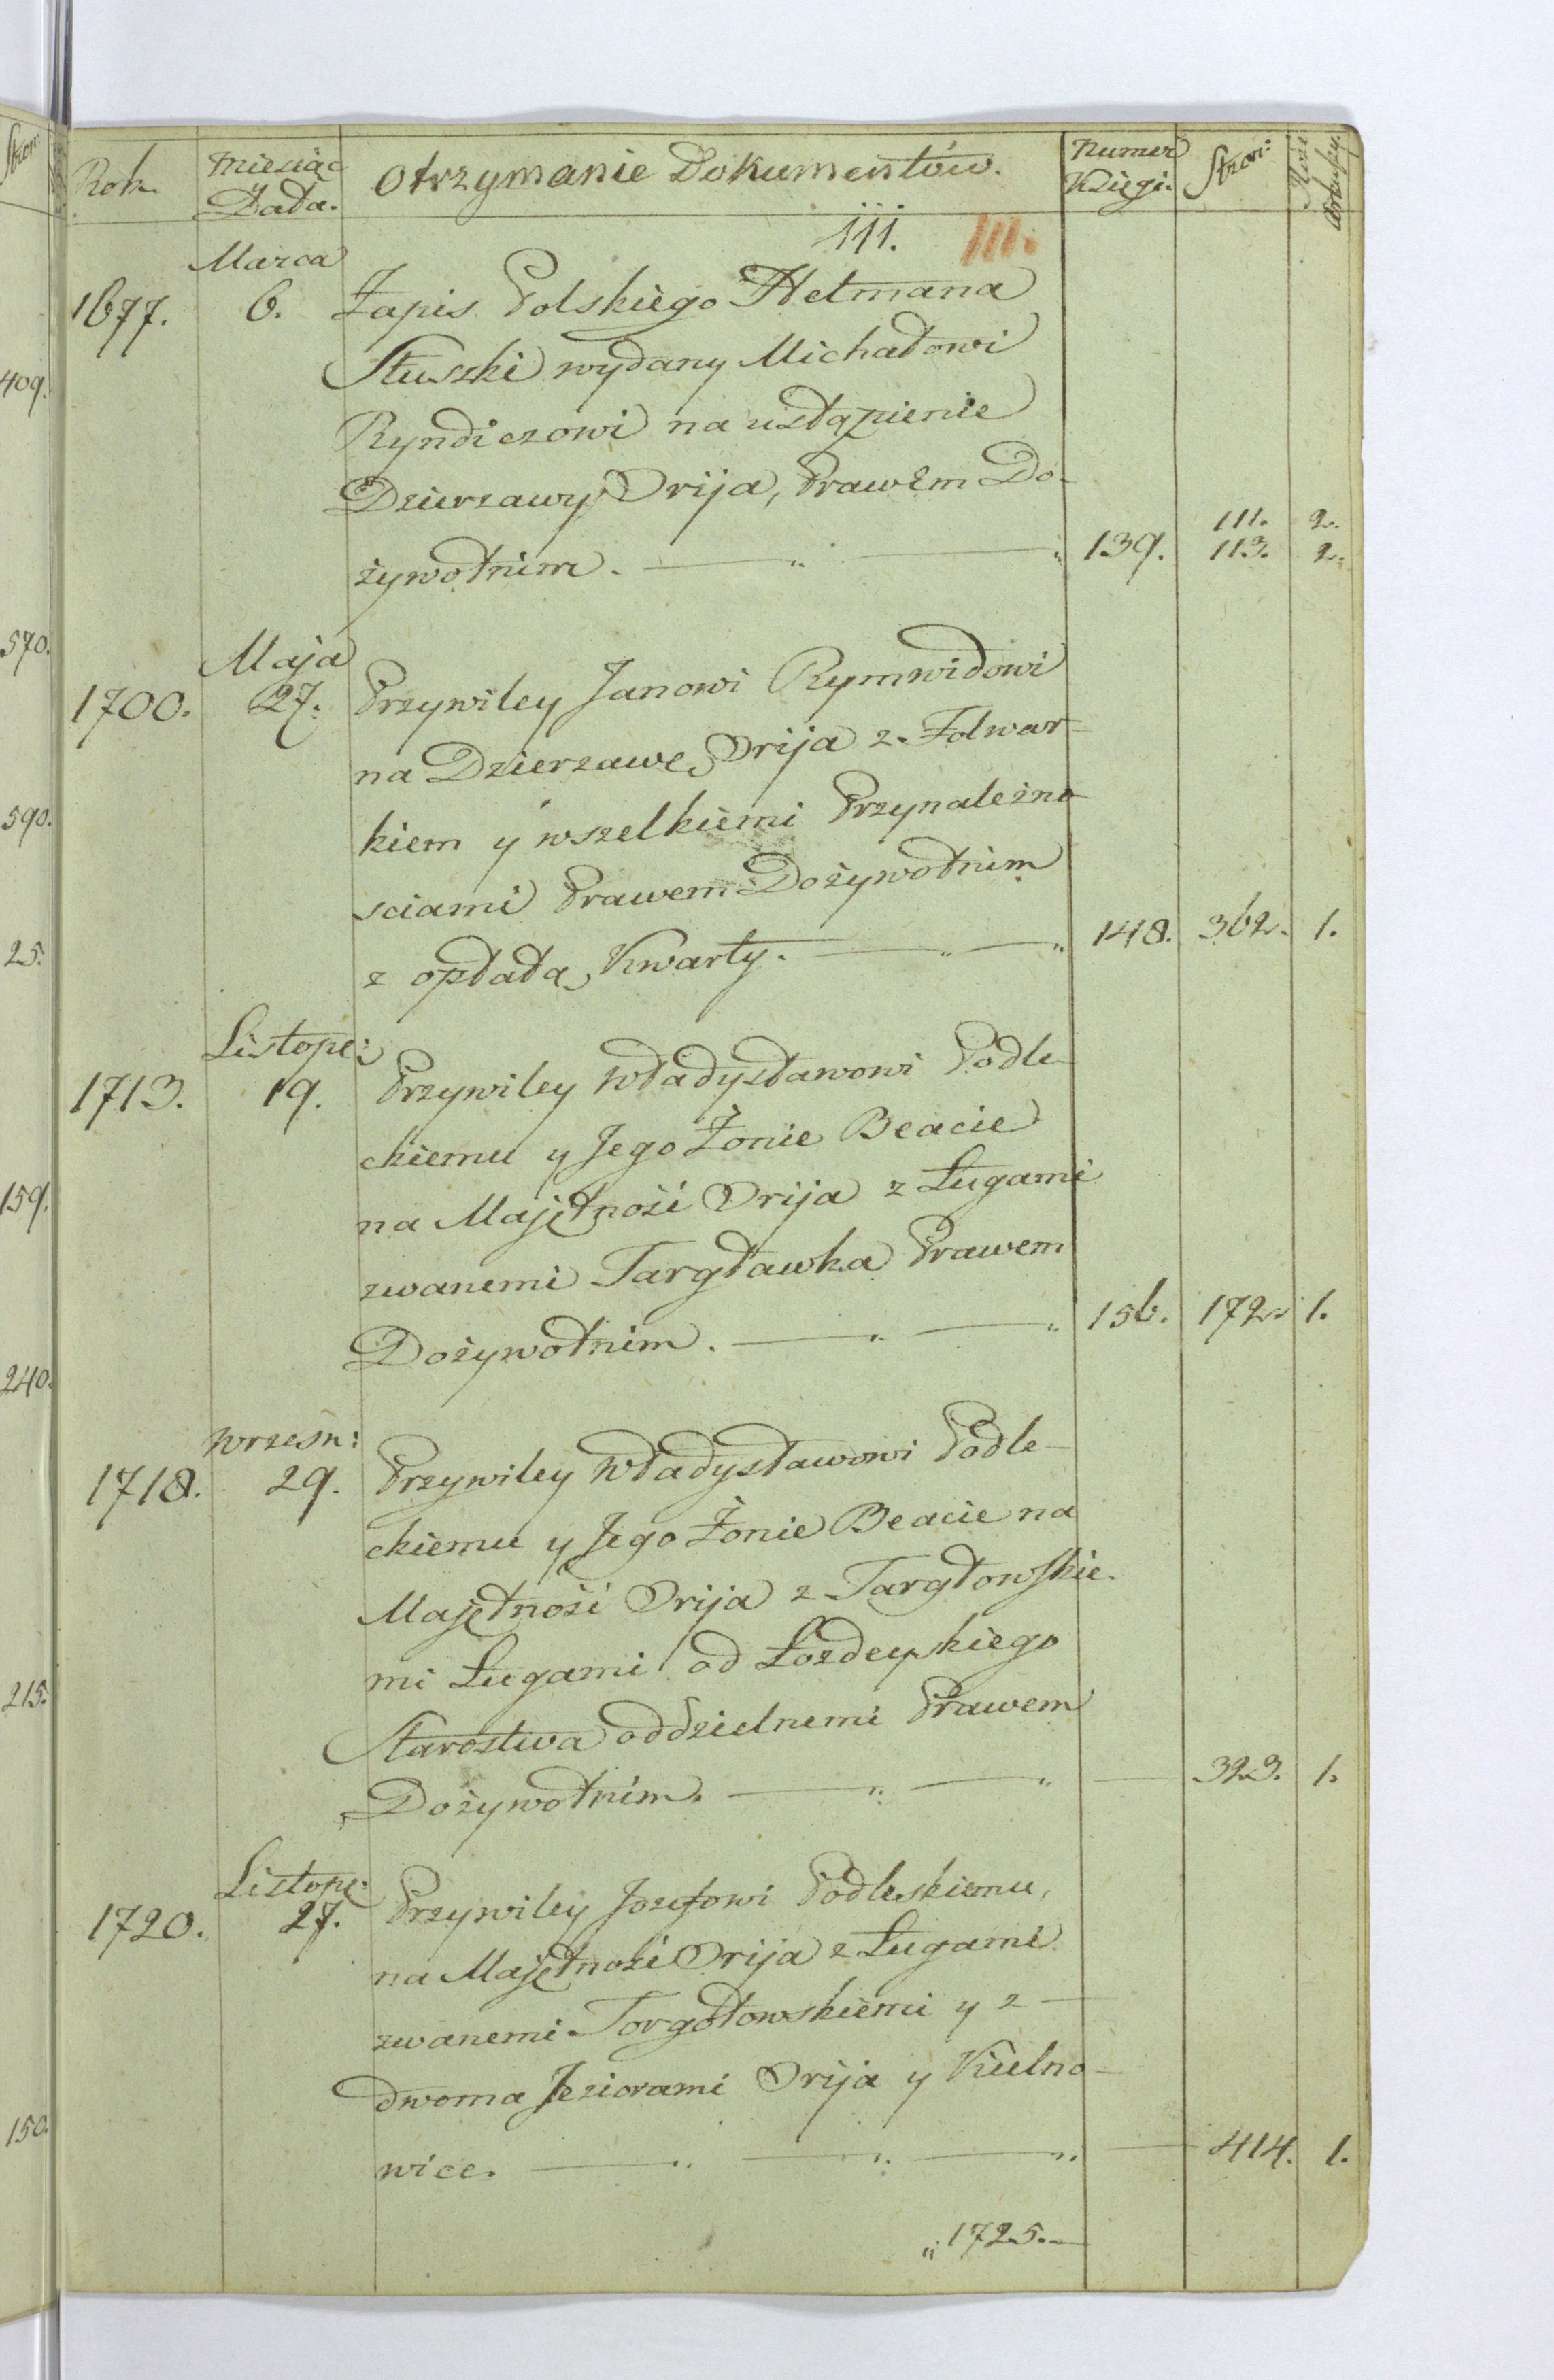 Stron:
409.
570.
590.
25.
159.
240.
215.
150.
Rok. Miesiąc Data. Otrzymanie Dokumentów. Numer Xięgi. Stron:
111. III.
Marca
1677. 6. Zapis Polskiego Hetmana
Słuszki wydany Michałowi
Ryndiczowi na ustąpienie
Dzierzawy Orija, Prawem Do-
żywotnim. 139. 111. 2.
113. 2.
Maja
1700. 27. Przywiley Janowi Rymwidowi
na Dzierzawę Orija z Folwar-
kiem y wszelkiemi Przynależno-
sciami Prawem Dożywotnim
z opłatą Kwarty. 148. 362. 1.
Listope:
1713. 19. Przywiley Władysławowi Podle-
ckiemu y Jego Żonie Beacie
na Majętność Orija z Ługami
zwanemi Targławka Prawem
Dożywotnim. 156. 172. 1.
Wrzesn:
1718. 29. Przywiley Władysławowi Podle-
ckiemu y Jego Żonie Beacie na
Majętność Orija z Targłowskie-
mi Ługami od Łozdeyskiego
Starostwa oddzielnemi Prawem
Dożywotnim. 323. 1.
Listope:
1720. 27. Przywiley Jozefowi Podleskiemu,
na Majętność Orija z Ługami
zwanemi Torgołowskiemi y z
dwoma Jeziorami Orija y Kielno-
wice. 414. 1.
„1725.